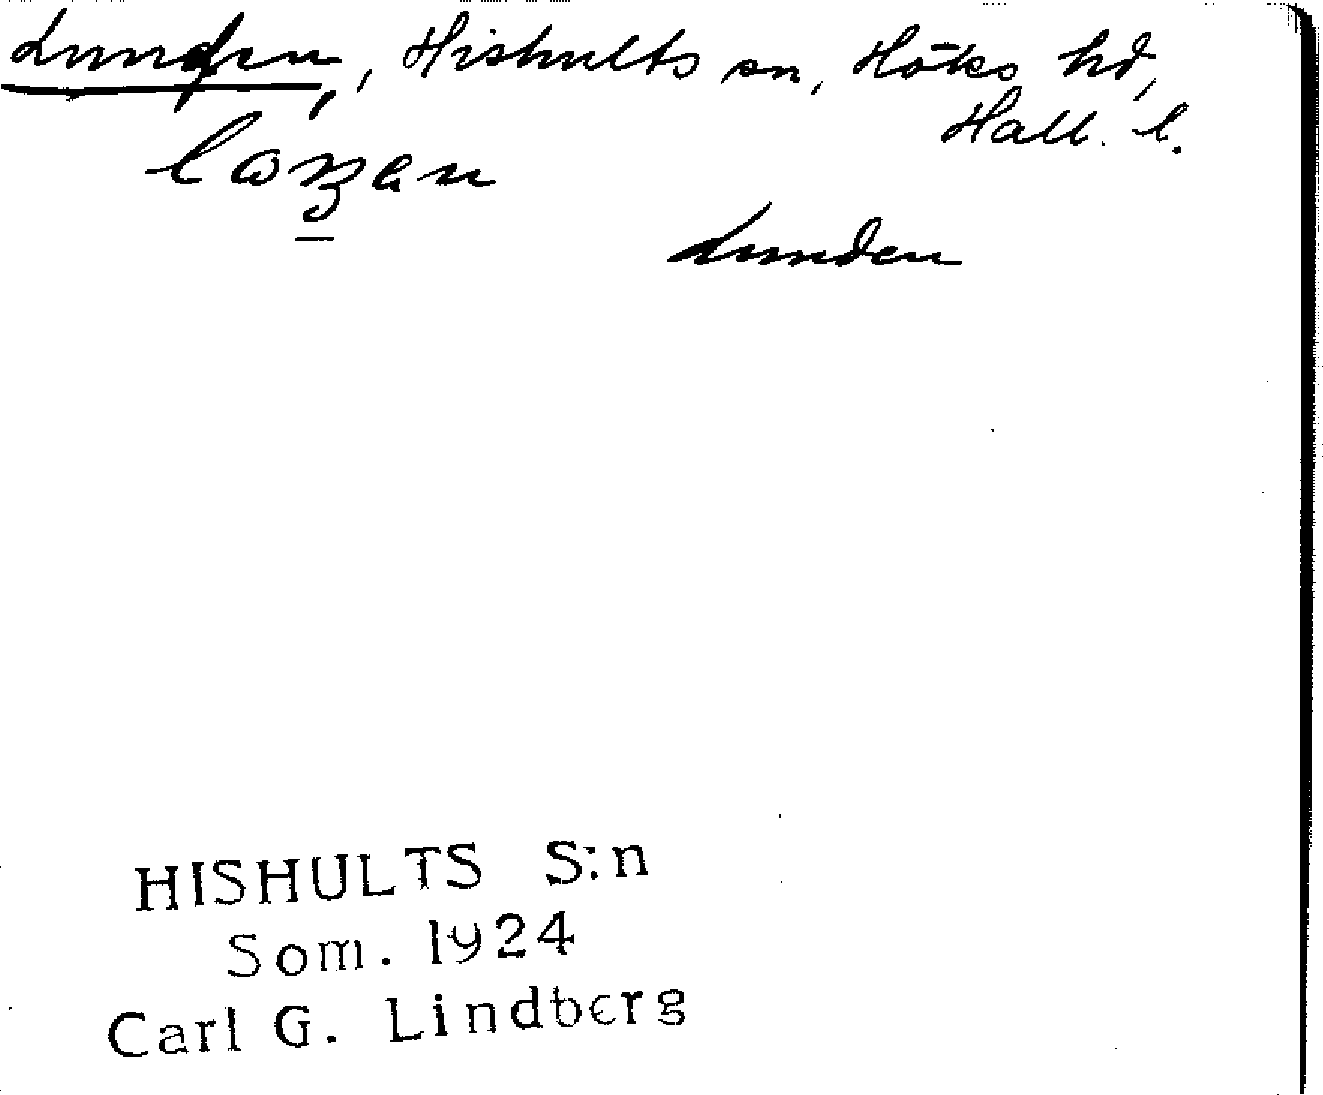 Lunden, Hishults sn, Höks hd,
Hall. l.
Lunden
HISHULTS S:n
Som. 1924
Carl G. Lindberg